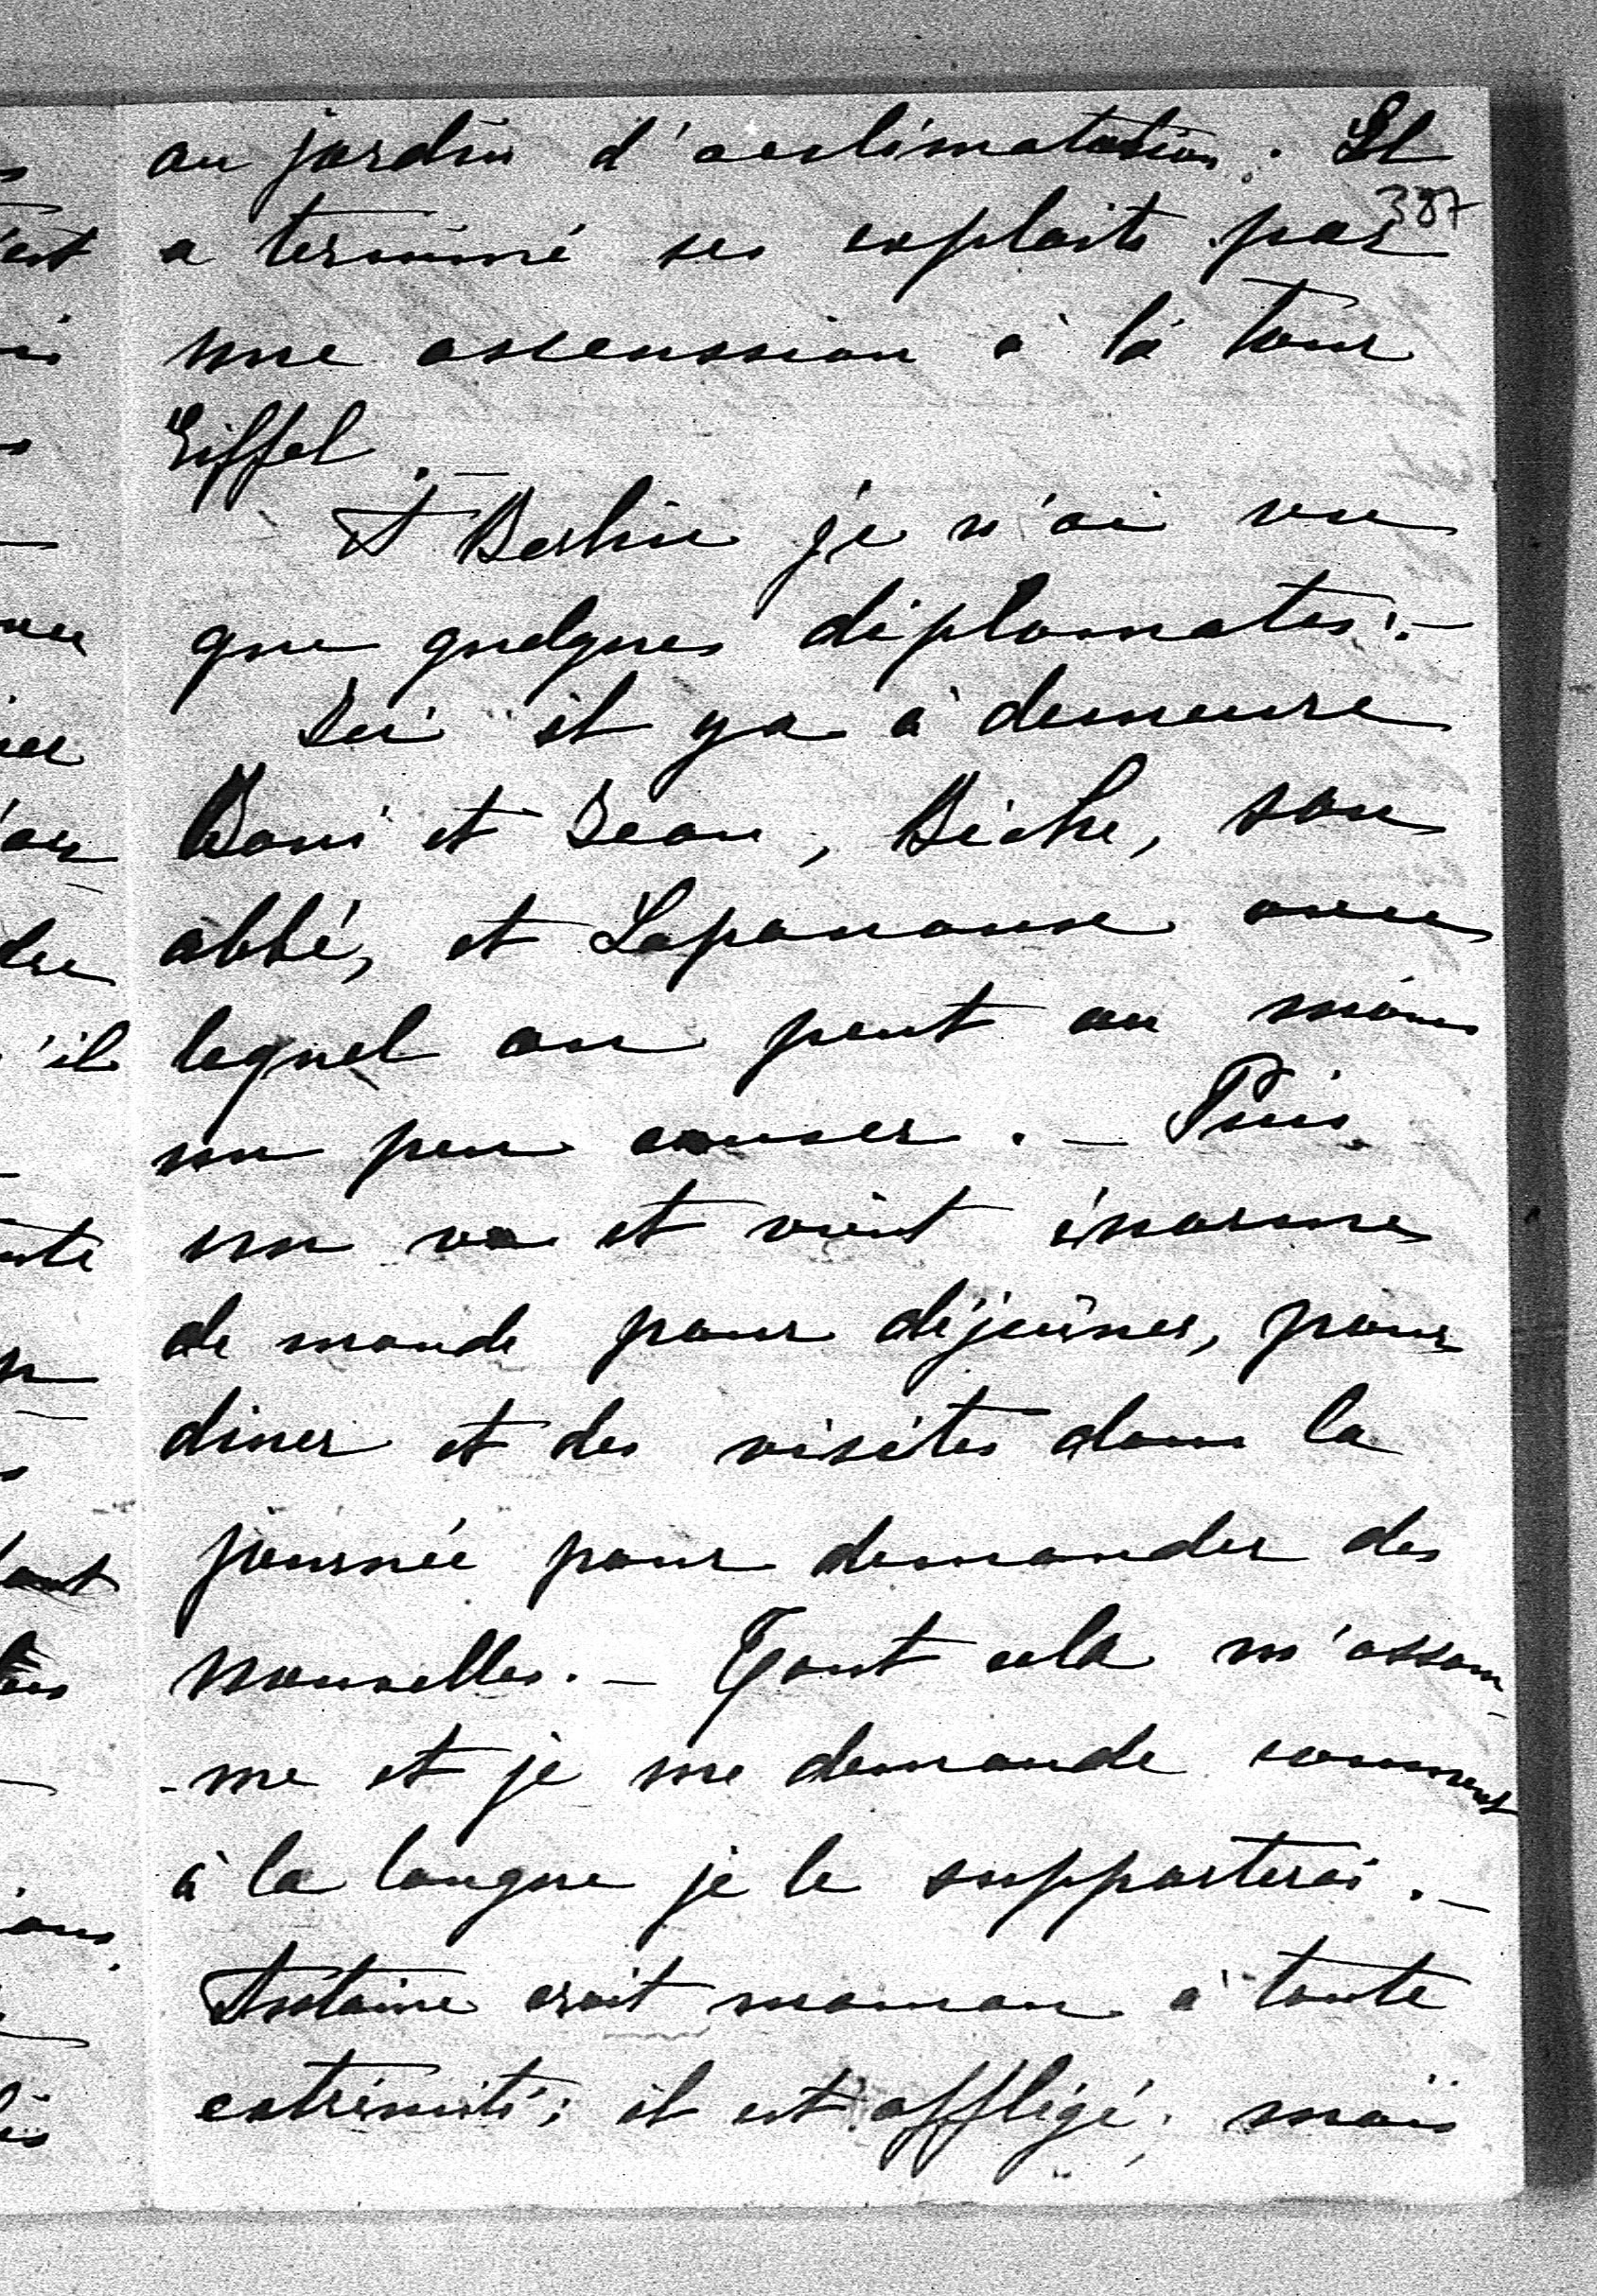 au jardin d'acclimatation. Il
387
a terminé ses exploits par
une ascenssion à la tour
Eiffel. —
A Berlin je n'ai vu
que quelques diplomates. —
Ici il y a à demeure
Boni et Jean, Biche, son
abbé, et Lapanouse avec
lequel on peut au moins
un peu causer. — Puis
un va et vient énorme
de monde pour déjeûner, pour
diner et des visites dans la
journée pour demander des
nouvelles. — Tout cela m'assom-
-me et je me demande comment
à la longue je le supporterai. —
Antoine croit maman à toute
extrémité; il est affligé, mais